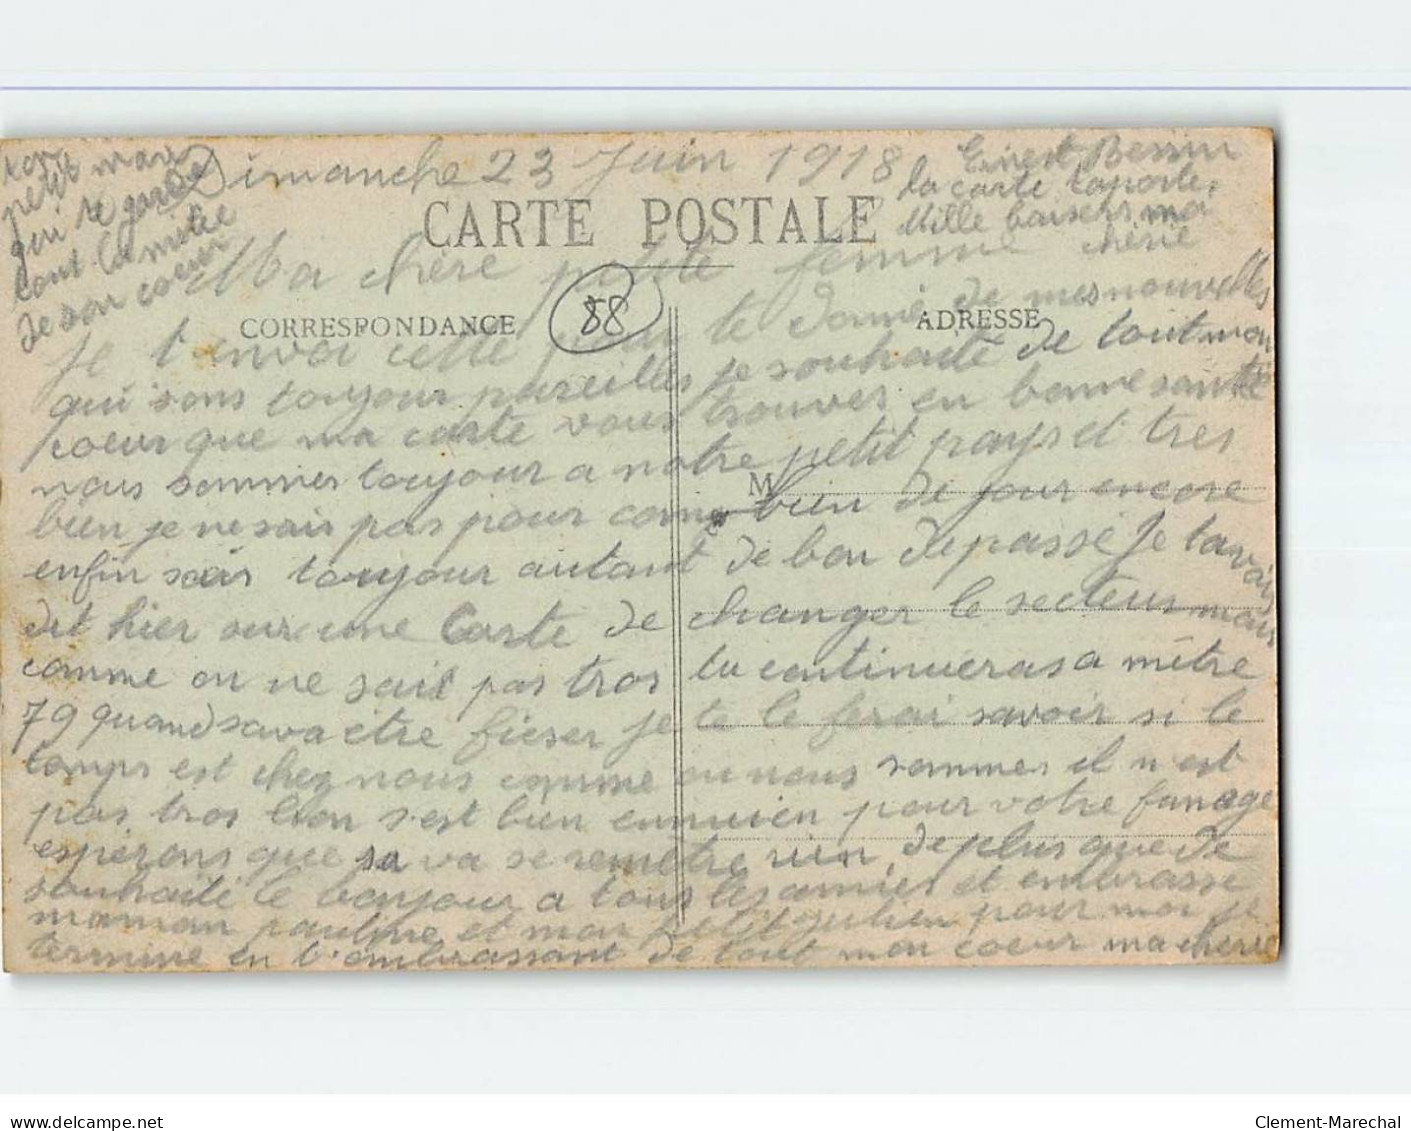 Dimanche 23 Juin 1918
CARTE POSTALE
Ma chère petite femme chérie
CORRESPONDANCE
88
ADRESSE
Je t'envoi cette te donné de mes nouvelles
qui sons toujour pareilles je souhaite de tout mon
coeur que ma carte vous trouves en bonne santé
nous sommes toujour a notre petit pays et tres
M
bien je ne sais pas pour combien de jour encore
enfin toujour autant de bon de passé Je tavais
dit hier sur une Carte de changer le secteur mais
comme on ne sait pas tros tu continueras a mêtre
79 quand sava être fixser je te le ferai savoir si le
tamps est chez nous comme ou nous sommes il n'est
pas tros bon s'est bien ennuien pour votre fanage
espérons que sa va se remêtre rien de plus que de
souhaité le bonjour a tous les amies et embrasse
maman pauline et mon petit julien pour moi je
termine en t'embrassant de tout mon coeur ma cherie
ton
petit mari
qui te garde
tout la mitié
de son coeur
Ernest Bessin
la carte
Mille baisers moi
delcampe.net
Clement-Marechal